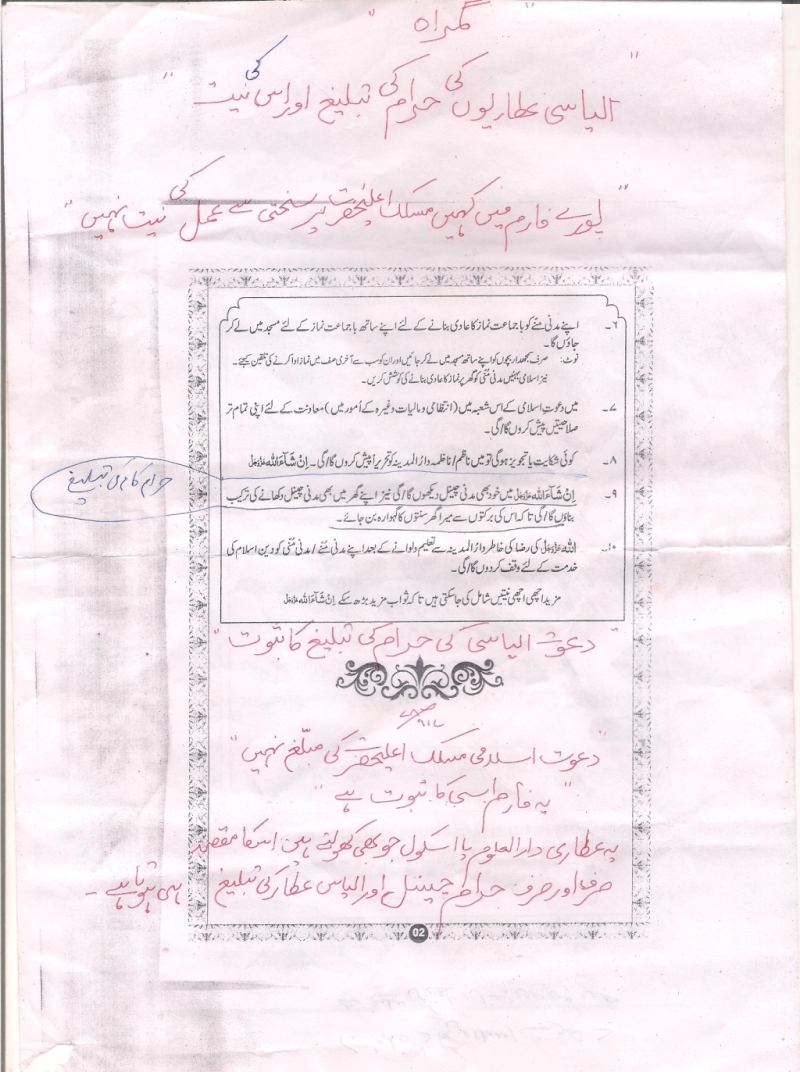 " گمراہ "
" الیاسی عطاریوں کی حرام کی تبلیغ اور اس کی نیت "
" پورے فارم میں کہیں مسلک اعلیٰحضرت پر سختی سے عمل کی نیت نہیں "
۶۔ اپنے مدنی منے کو باجماعت نماز کا عادی بنانے کے لئے اپنے ساتھ باجماعت نماز کے لئے مسجد میں لے کر
جاؤں گا۔
نوٹ: صرف سمجھدار بچوں کو اپنے ساتھ مسجد میں لے کر جائیں اور ان کو سب سے آخری صف میں نماز ادا کرنے کی تلقین کیجئے۔
نیز اسلامی بہنیں مدنی مُنّی کو گھر پر نماز کا عادی بنانے کی کوشش کریں۔
۷۔ میں دعوتِ اسلامی کے اس شعبہ میں (انتظامی و مالیات وغیرہ کے اُمور میں) معاونت کے لئے اپنی تمام تر
صلاحیتیں پیش کروں گا/گی۔
۸۔ کوئی شکایت یا تجویز ہوگی تو میں ناظم/ناظمہ دارُ المدینہ کو تحریراً پیش کروں گا/گی۔ اِنْ شَآءَاللہ عَزَّوَجَلَّ
حرام کام کی تبلیغ
۹۔ اِنْ شَآءَاللہ عَزَّوَجَلَّ میں خود بھی مدنی چینل دیکھوں گا/گی نیز اپنے گھر میں بھی مدنی چینل دکھانے کی ترکیب
بناؤں گا/گی تاکہ اس کی برکتوں سے میرا گھر سنتوں کا گہوارہ بن جائے۔
۱۰۔ اللہ عَزَّوَجَلَّ کی رضا کی خاطر دارُ المدینہ سے تعلیم دلوانے کے بعد اپنے مدنی مُنّے/مدنی مُنّی کو دین اسلام کی
خدمت کے لئے وقف کردوں گا/گی۔
مزید اچھی اچھی نیتیں شامل کی جاسکتی ہیں تاکہ ثواب مزید بڑھ سکے اِنْ شَآءَاللہ عَزَّوَجَلَّ
" دعوت الیاسی کی حرام کی تبلیغ کا ثبوت "
" دعوت اسلامی مسلک اعلیٰحضرت کی مبلّغ نہیں "
" یہ فارم اسی کا ثبوت ہے "
یہ عطاری دارالعلوم یا اسکول جو بھی کھولتے ہیں اسکا مقصد
صرف اور صرف حرام چینل اور الیاس عطار کی تبلیغ ہی ہوتا ہے۔
02